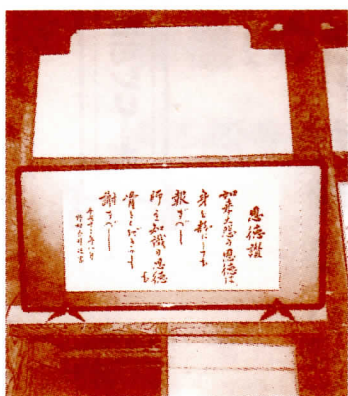 恩徳讃
如来大悲の恩徳は
身を粉にしても
報ずべし
師主知識の恩徳も
骨をくだきても
謝すべし